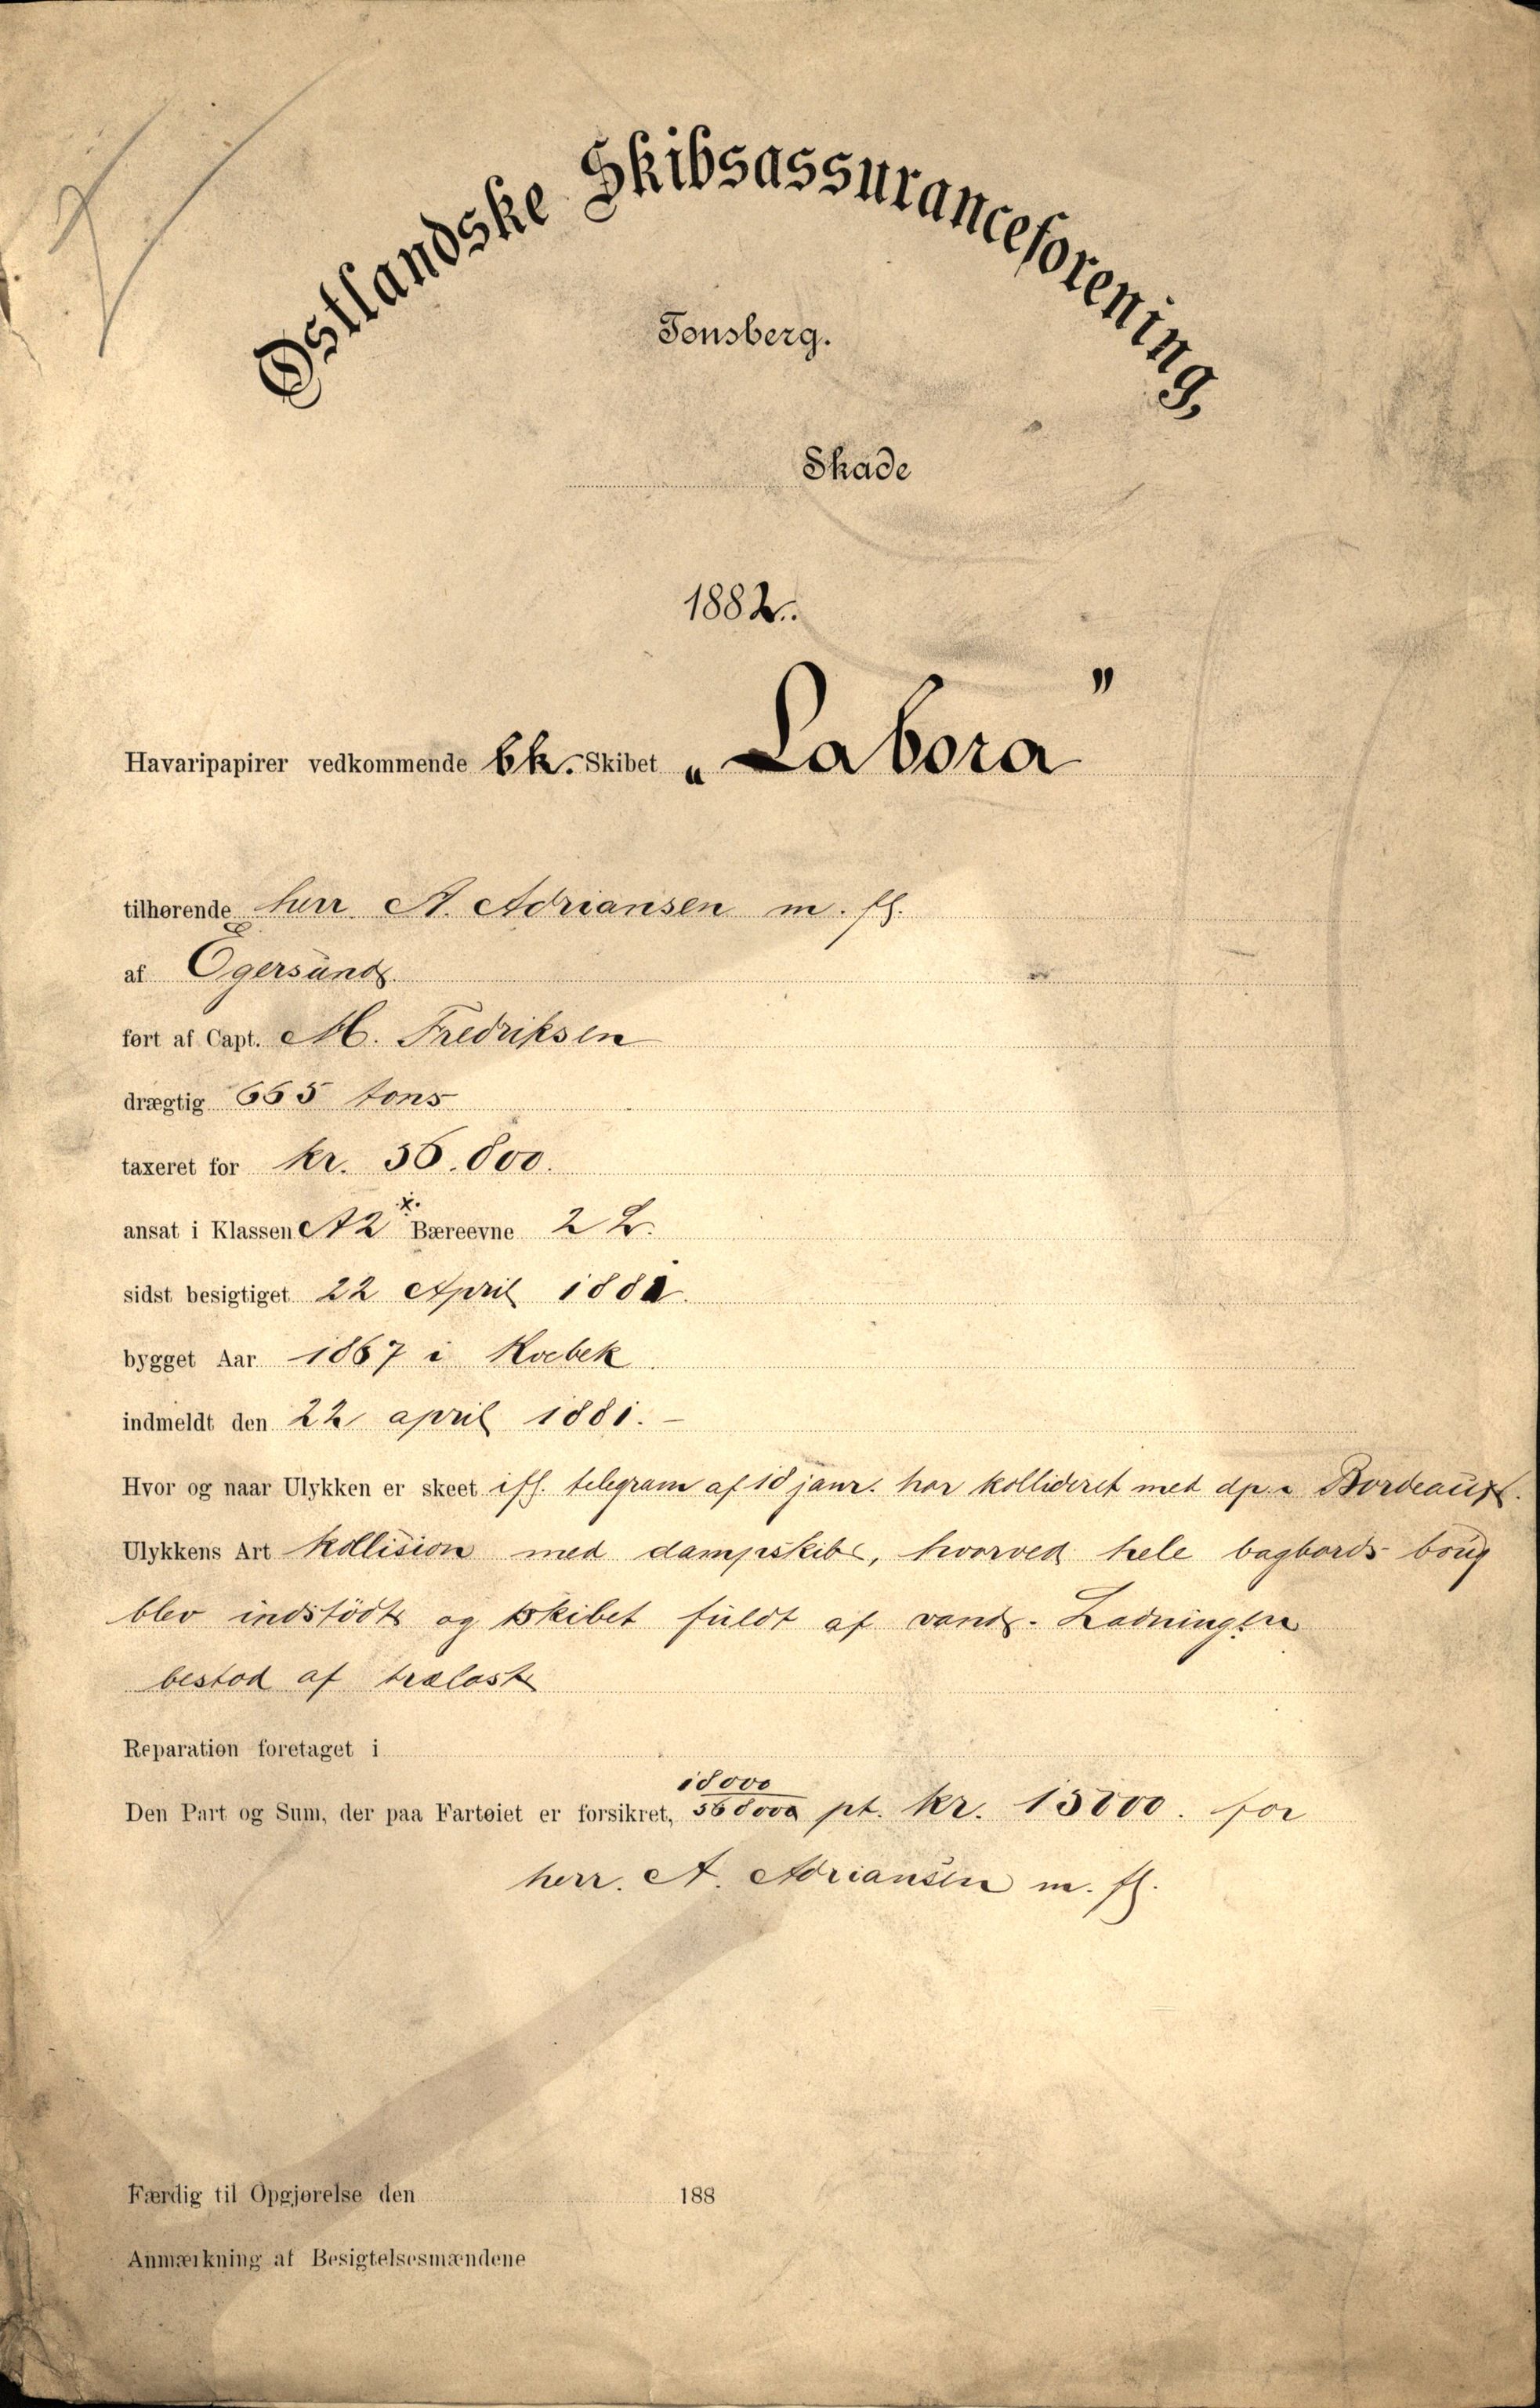 Østlandske Skibsassuranceforening,
Tønsberg.
Skade
1882.
Havaripapirer vedkommende bk. Skibet „Labora"
tilhørende herr A. Adriansen m. fl.
af Egersund
ført af Capt. M. Fredriksen
drægtig 665 tons
taxeret for kr. 36.800.
ansat i Klassen A2 x. Bæreevne 2 L.
sidst besigtiget 22 April 1881.
bygget Aar 1867 i Kvebek
indmeldt den 22 april 1881. –
Hvor og naar Ulykken er skeet ifl. telegram af 18 janr. har kollideret med dp. i Bordeaux.
Ulykkens Art kollision med dampskib, hvorved hele bagbords boug
blev indstödt og skibet fuldt af vand. Ladningen
bestod af trælast
Reparation foretaget i
Den Part og Sum, der paa Fartøiet er forsikret, 18000/368000 pt. kr. 18000. for
herr. A. Adriansen m. fl.
Færdig til Opgjørelse den 188
Anmærkning af Besigtelsesmændene